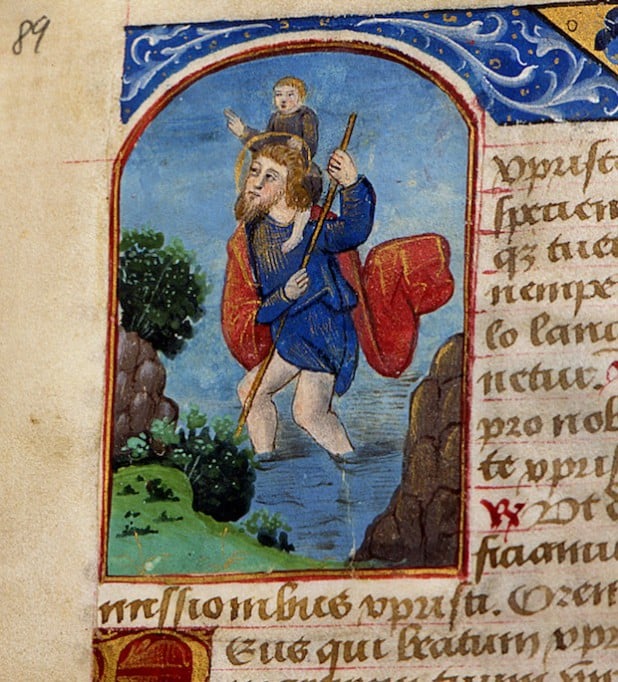 89
xpristi
specien
qz tue
nempe
lo lanc
netur.
pro nob
te xpris
Ut d
ficiamu
missionibus xpristi. Orem
Eus qui beatum xpr